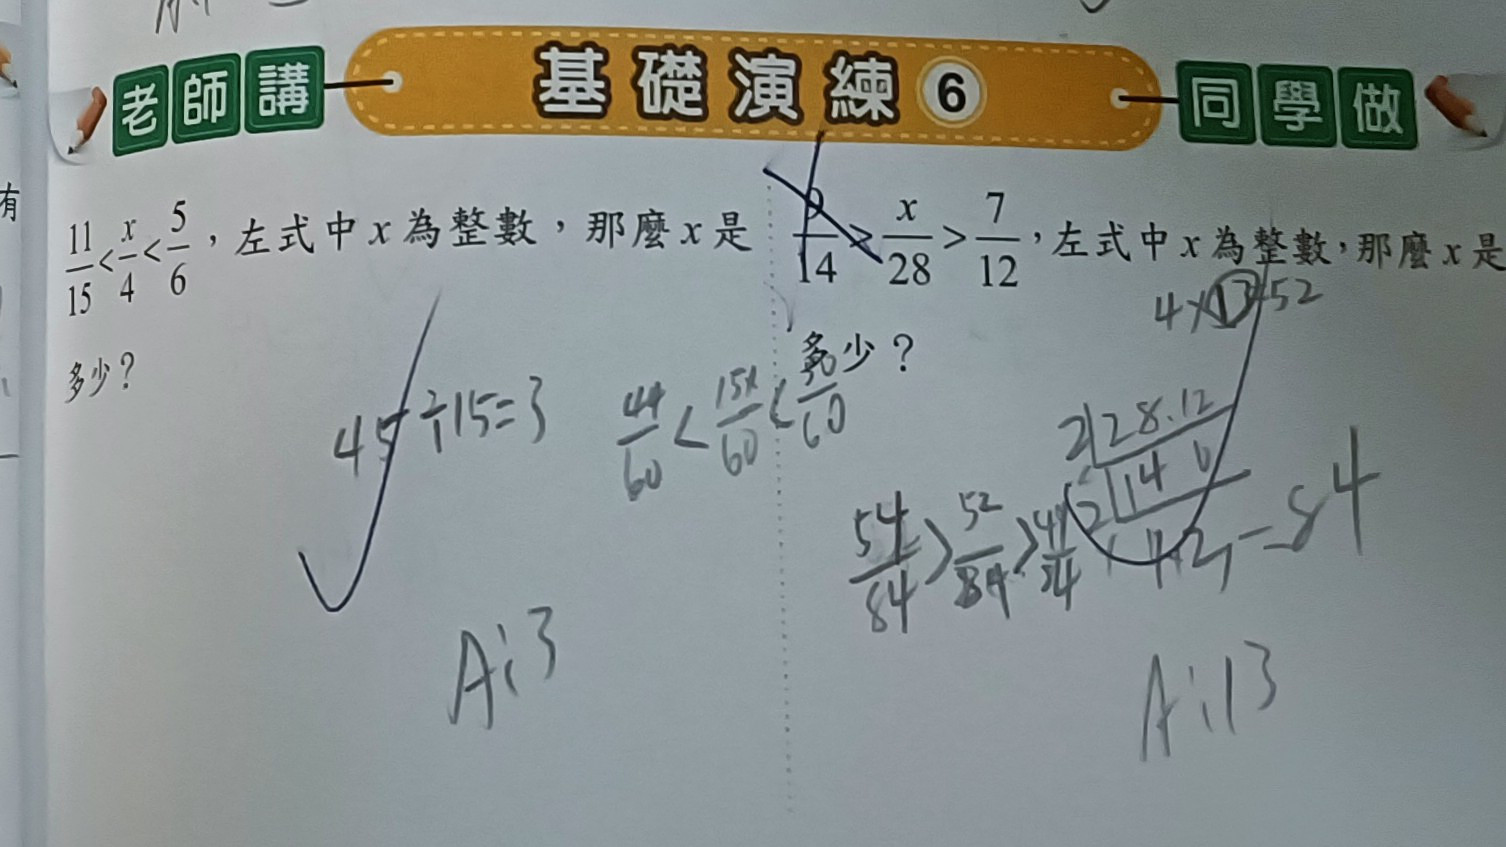 老師講 基礎演練 6 同學做
11/15 < x/4 < 5/6，左式中 x 為整數，那麼 x 是
多少？
45÷15=3
44/60 < 15x/60 < 50/60
A:3
9/14 > x/28 > 7/12，左式中 x 為整數，那麼 x 是
多少？
4×13=52
2 28.12
2 14 6
=84
54/84 > 52/84 > 49/84
A:13
有